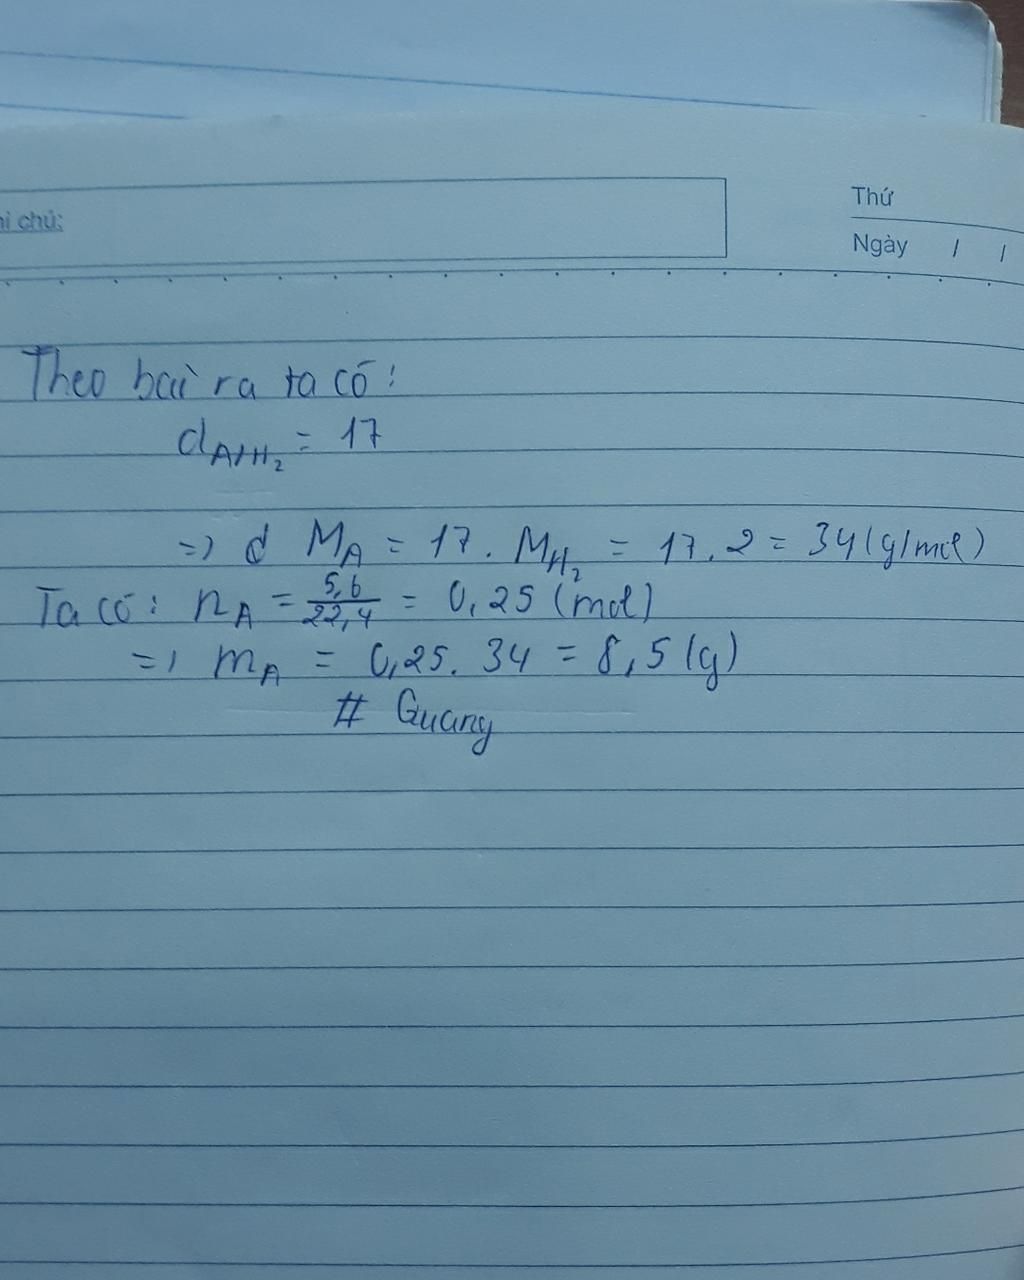 hi chú:
Thứ
Ngày / /
Theo bài ra ta có:
d_A/H₂ = 17
=> d M_A = 17 . M_H₂ = 17 . 2 = 34 (g/mol)
Ta có: n_A = 5,6/22,4 = 0,25 (mol)
=> m_A = 0,25. 34 = 8,5 (g)
# Quang